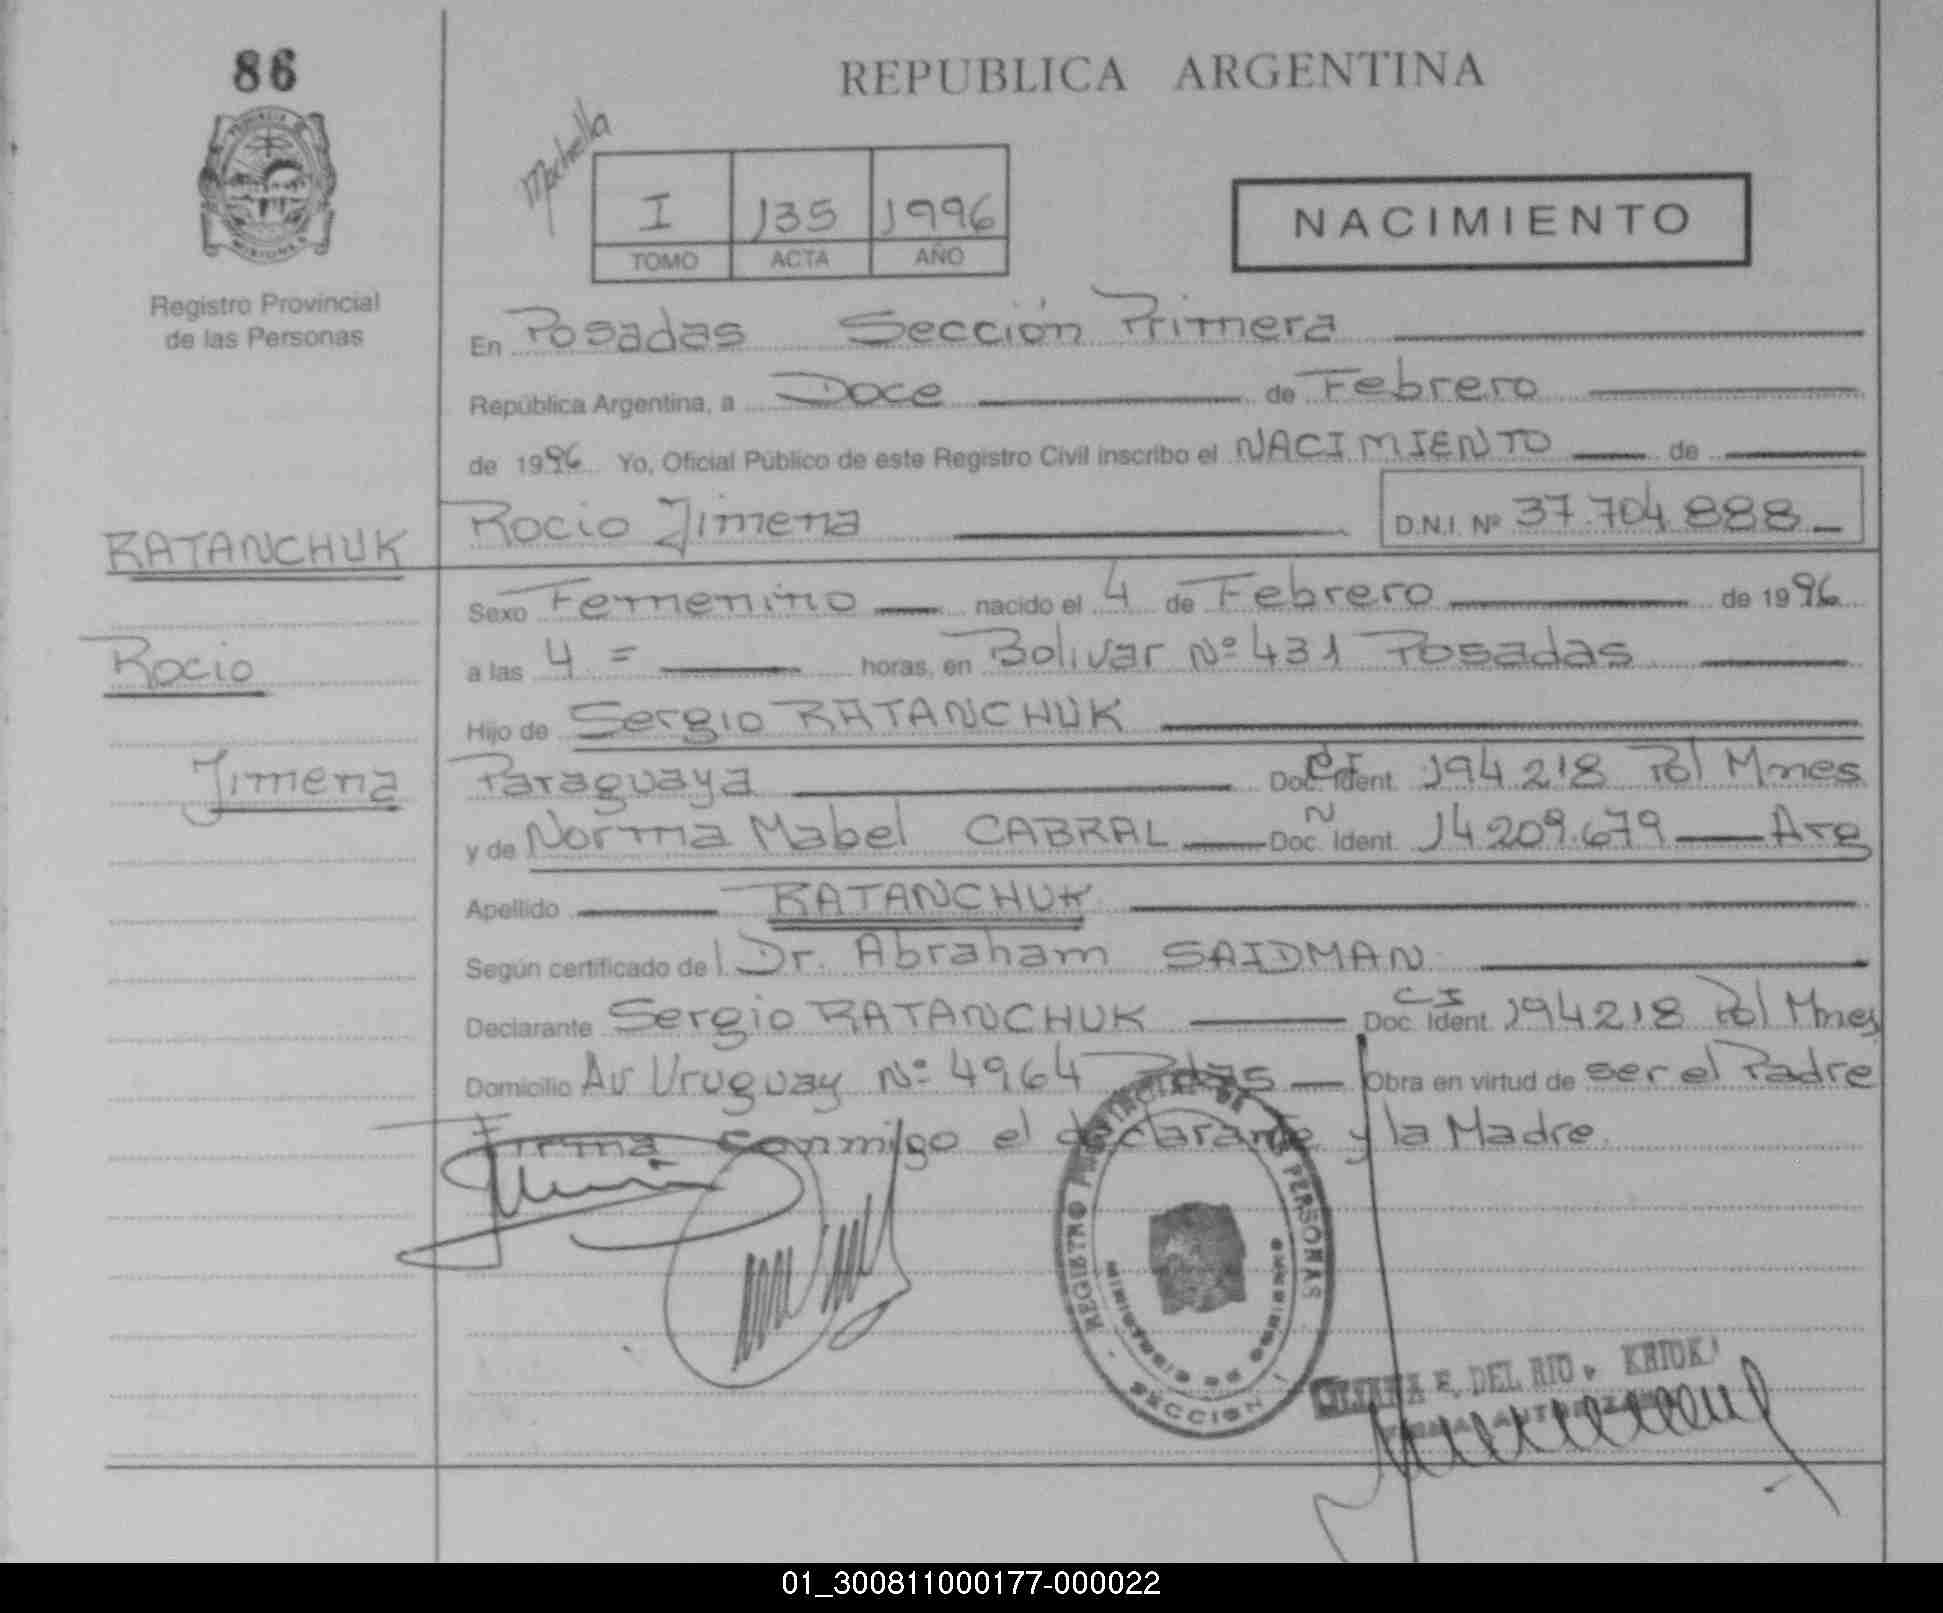 86
REPUBLICA ARGENTINA
Mochella
I 135 1996
TOMO ACTA AÑO
NACIMIENTO
Registro Provincial
de las Personas
En Posadas Sección Primera
República Argentina, a Doce de Febrero
de 1996 Yo, Oficial Público de este Registro Civil inscribo el NACIMIENTO de
RATANCHUK
Rocio Jimena D.N.I. Nº 37.704.888
Sexo Femenino nacido el 4 de Febrero de 1996
Rocio
a las 4 = horas, en Bolivar Nº 431 Posadas
Hijo de Sergio RATANCHUK
Jimena
Paraguaya Doc. Ident. CI 194.218 Pol Mnes
y de Norma Mabel CABRAL Doc. Ident. N 14.209.679 Arg
Apellido RATANCHUK
Según certificado del Dr. Abraham SAIDMAN
Declarante Sergio RATANCHUK Doc. Ident. CI 194218 Pol Mnes
Domicilio Av Uruguay Nº 4964 Pdas Obra en virtud de ser el Padre
Firma conmigo el declarante y la Madre.
REGISTRO PROVINCIAL DE LAS PERSONAS
MINISTERIO DE GOBIERNO
SECCION 1
E. DEL RIO
01_300811000177-000022